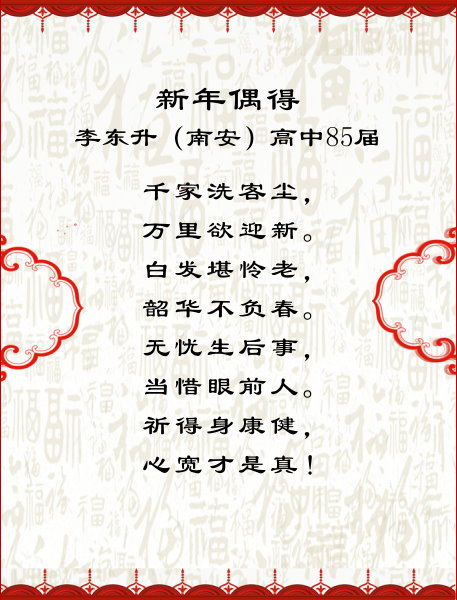 新年偶得
李东升（南安）高中85届
千家洗客尘，
万里欲迎新。
白发堪怜老，
韶华不负春。
无忧生后事，
当惜眼前人。
祈得身康健，
心宽才是真！